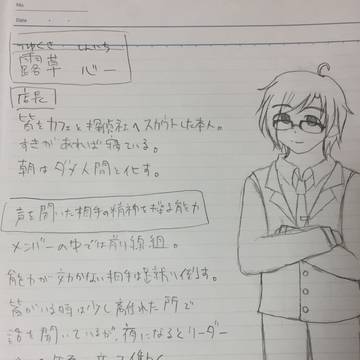 No.
Date
つゆくさ しんいち
露草 心一
店長
皆をカフェと探偵社へスカウトした本人。
すきがあれば寝ている。
朝はダメ人間と化す。
声を聞いた相手の精神を操る能力
メンバーの中では前線組。
能力が効かない相手は
皆がいる時は少し離れた所で
話を聞いているが、夜になるとリーダー